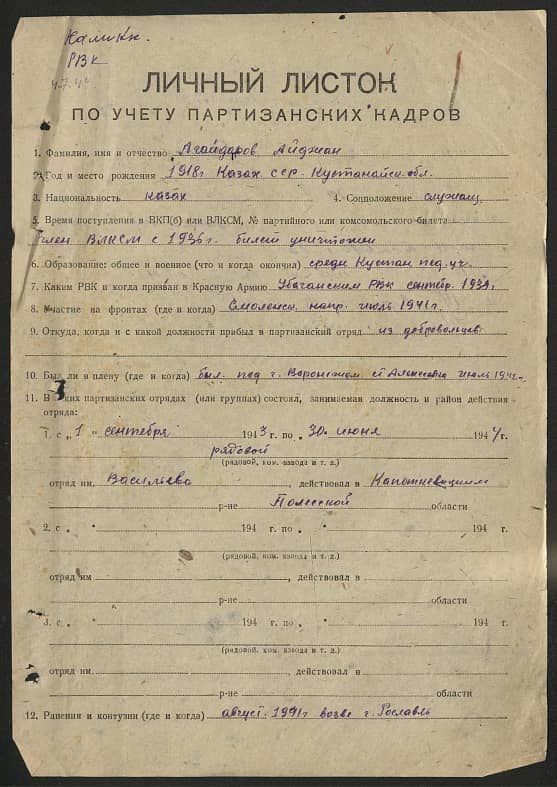 РВК
ЛИЧНЫЙ ЛИСТОК
ПО УЧЕТУ ПАРТИЗАНСКИХ КАДРОВ
1. Фамилия, имя и отчество Агайдаров Айджан
2. Год и место рождения 1918г Казах сср. Кустанайск. обл.
3. Национальность казах 4. Соцположение служащ.
5. Время поступления в ВКП(б) или ВЛКСМ, № партийного или комсомольского билета
член ВЛКСМ с 1936г. билет уничтожен
6. Образование: общее и военное (что и когда окончил) средн Кустан пед. уч.
7. Каким РВК и когда призван в Красную Армию Убаганским РВК сентябр. 1939г.
8. Участие на фронтах (где и когда) Смоленск. напр. июль 1941г.
9. Откуда, когда и с какой должности прибыл в партизанский отряд из добровольцев
10. Был ли в плену (где и когда) был. под г. Воронежом. ст Алексеевка июль 1942г.
11. В каких партизанских отрядах (или группах) состоял, занимаемая должность и район действия
отряда:
1. с „ 1 „ сентября 1943 г. по „ 30 „ июня 1944 г.
рядовой
(рядовой, ком. взвода и т. д.)
отряд им. Васильева, действовал в Капаткевицким
р-не Полесской области
2. с „ „ 194 г. по „ „ 194 г.
(рядовой, ком. взвода и т. д.)
отряд им , действовал в
р-не области
3. с „ „ 194 г. по „ „ 194 г.
(рядовой, ком. взвода и т. д.)
отряд им. , действовал в
р-не области
12. Ранения и контузии (где и когда) август. 1941г возле г. Рославль